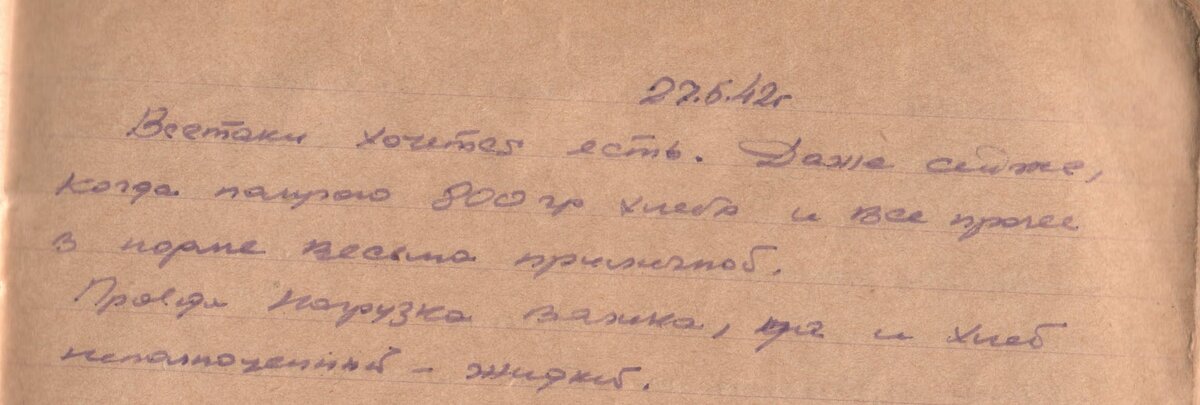 27.5.42г
Всетаки хочется есть. Даже сейчас,
когда получаю 800 гр хлеба и все прочее
в норме весьма приличной.
Правда нагрузка важка, да и хлеб
неполноценный - жидкий.